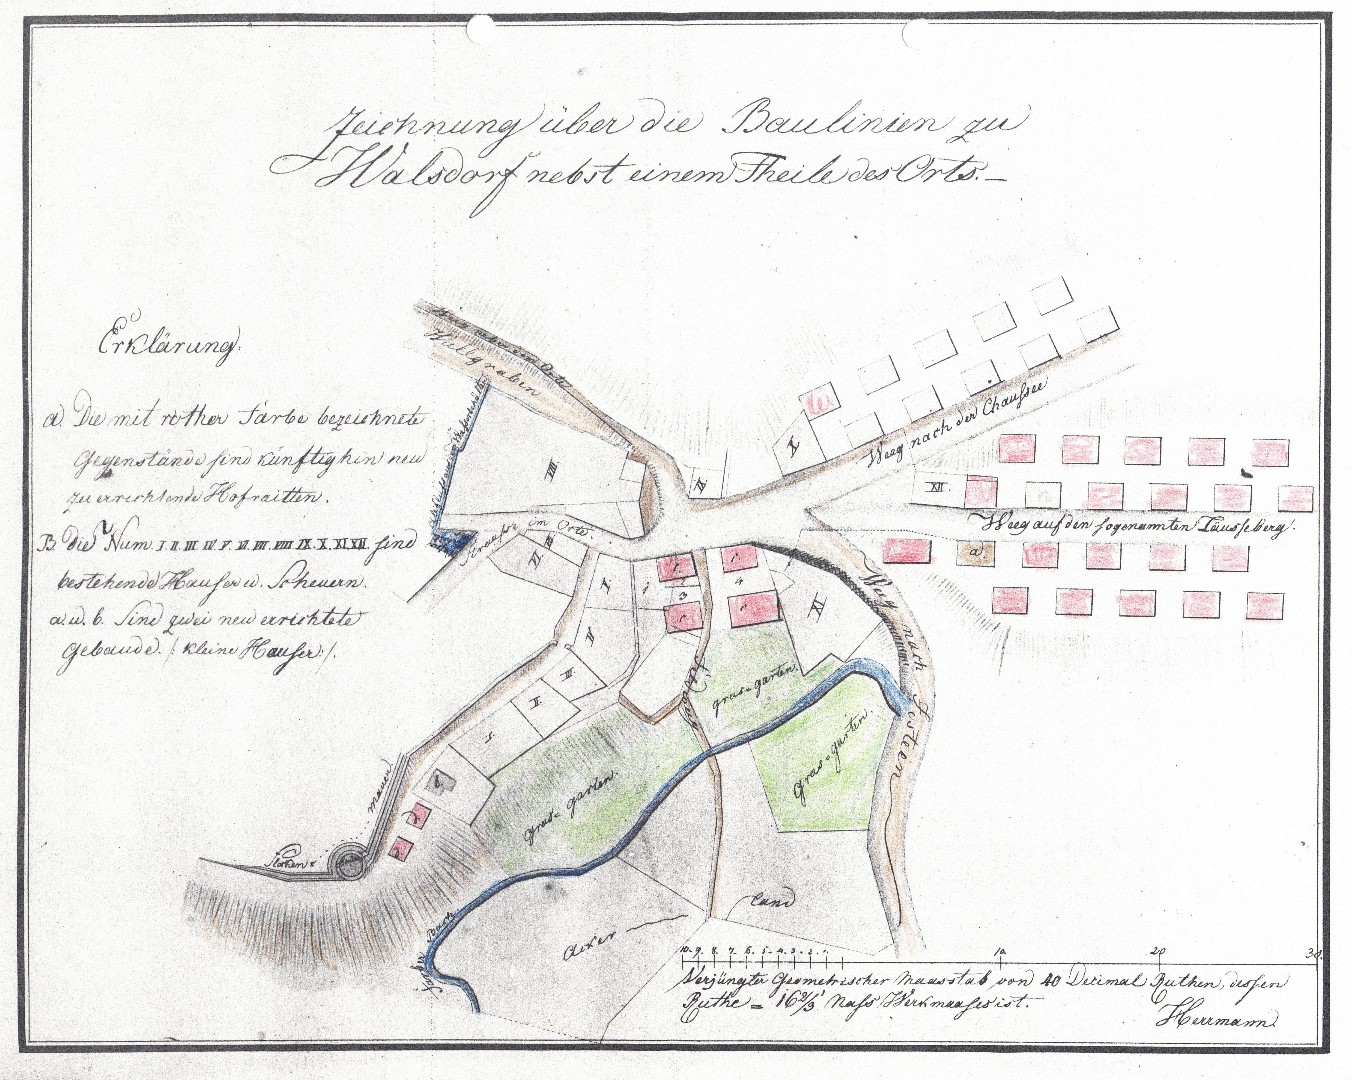 Zeichnung über die Baulinien zu
Walsdorf nebst einem Theile des Orts.
Erklärung.
a) Die mit rother Farbe bezeichnete
Gegenstände sind künftighin neu
zu errichtende Hofraitten.
B. die Num. I II III IV V VI VII VIII IX X XI XII sind
bestehende Häuser u. Scheuern.
a. u. b. sind zwei neu errichtete
Gebäude. /: kleine Häuser :/.
Hellgraben
Straße im Orte
Weeg nach der Chaussee
Weeg auf den sogenannten Täusseberg.
Weeg nach Idstein
VIII
VII
VI
V
IV
III
II
I
IX
X
XI
XII
a.
b
1
2
3
4
mauer
gras-garten.
gras-garten.
gras-garten.
Acker
Land
Bach
10. 9. 8. 7. 6. 5. 4. 3. 2. 1. 10 20 30
Verjüngter Geometrischer Maasstab von 40 Decimal Ruthen, dessen
Ruthe = 16 2/3' Nass Werkmaases ist.
Herrmann